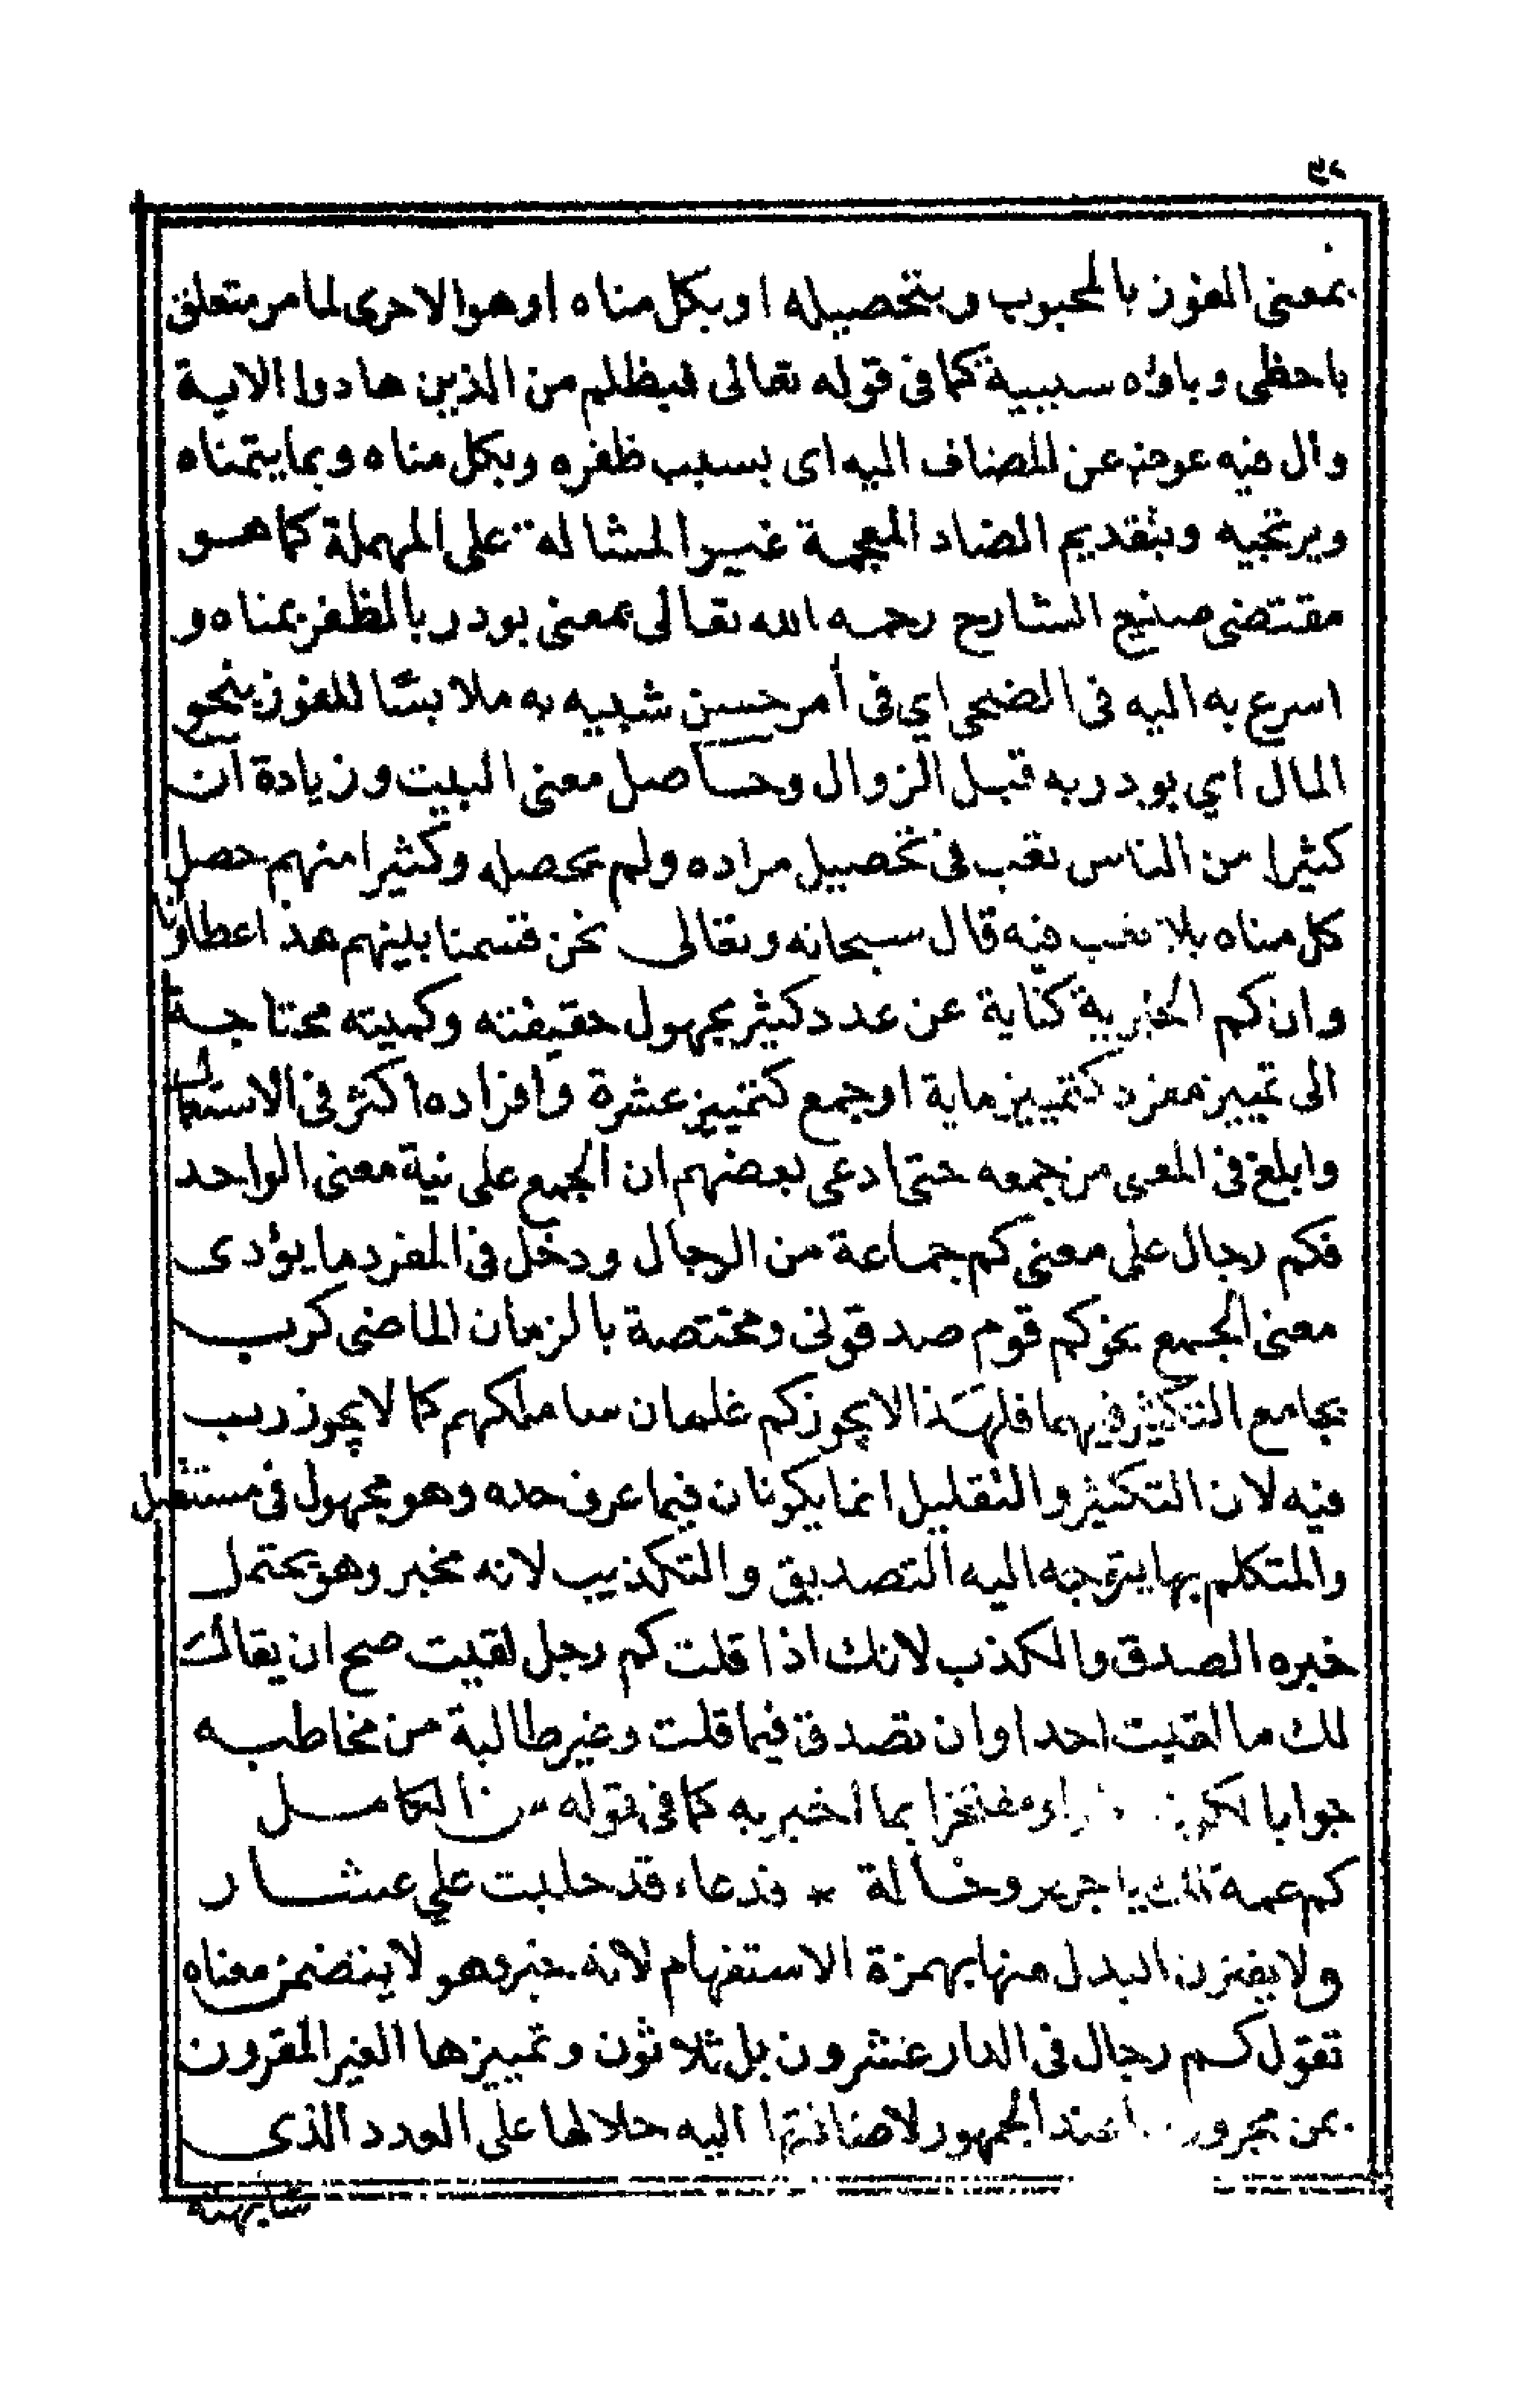 بمعنى الفوز بالمحبوب وبتحصيله او بكل مناه او هو الاحرى لما مر متعلق
باحظى وباؤه سببية كما فى قوله تعالى فبظلم من الذين هادوا الاية
وال فيه عوض عن المضاف اليه اى بسبب ظفره وبكل مناه وبما يتمناه
ويرتجيه وبتقديم الضاد المعجمة غير المشالة على المهملة كما هو
مقتضى صنيع الشارح رحمه الله تعالى بمعنى بودر بالظفر بمناه و
اسرع به اليه فى الضحى اي فى أمر حسن شبيه به ملابسًا للفوز بنحو
المال اي بودر به قبل الزوال وحاصل معنى البيت وزيادة ان
كثيرا من الناس تعب فى تحصيل مراده ولم يحصله وكثيرا منهم حصل
كل مناه بلا تعب فيه قال سبحانه وتعالى نحن قسمنا بينهم هذا عطاؤنا
وان كم الخبرية كناية عن عدد كثير مجهول حقيقته وكميته محتاجة
الى تمييز مفرد كتمييز ماية او جمع كتمييز عشرة وافراده اكثر فى الاستعمال
وابلغ فى المعنى من جمعه حتى ادعى بعضهم ان الجمع على نية معنى الواحد
فكم رجال على معنى كم جماعة من الرجال ودخل فى المفرد ما يؤدى
معنى الجمع نحو كم قوم صدقونى ومختصة بالزمان الماضى كرب
بجامع التكثير فيهما فلهذا لا يجوز كم غلمان ساملكهم كما لا يجوز رب
فيه لان التكثير والتقليل انما يكونان فيما عرف حده وهو مجهول فى مستقبل
والمتكلم بها يتوجه اليه التصديق والتكذيب لانه مخبر وهو يحتمل
خبره الصدق والكذب لانك اذا قلت كم رجل لقيت صح ان يقال
لك ما لقيت احدا وان تصدق فيما قلت وغير طالبة من مخاطبه
جوابا او مفتخرا بما اخبر به كما فى قوله من الكامل
كم عمة لك يا جرير وخالة * فدعاء قد حلبت علي عشار
ولا يقترن البدل منها بهمزة الاستفهام لانه خبر وهو لا يتضمن معناه
تقول كم رجال فى الدار عشرون بل ثلاثون وتمييزها الغير المقرون
بمن مجرور عند الجمهور لاضافتها اليه حملا لها على العدد الذى
شابهته